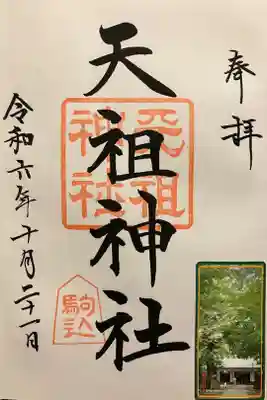 奉拝
天祖神社
天祖
神社
駒込
令和六年十月二十一日